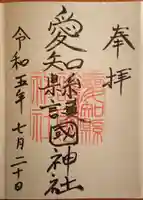 奉拝
愛知縣護國神社
令和五年七月二十日